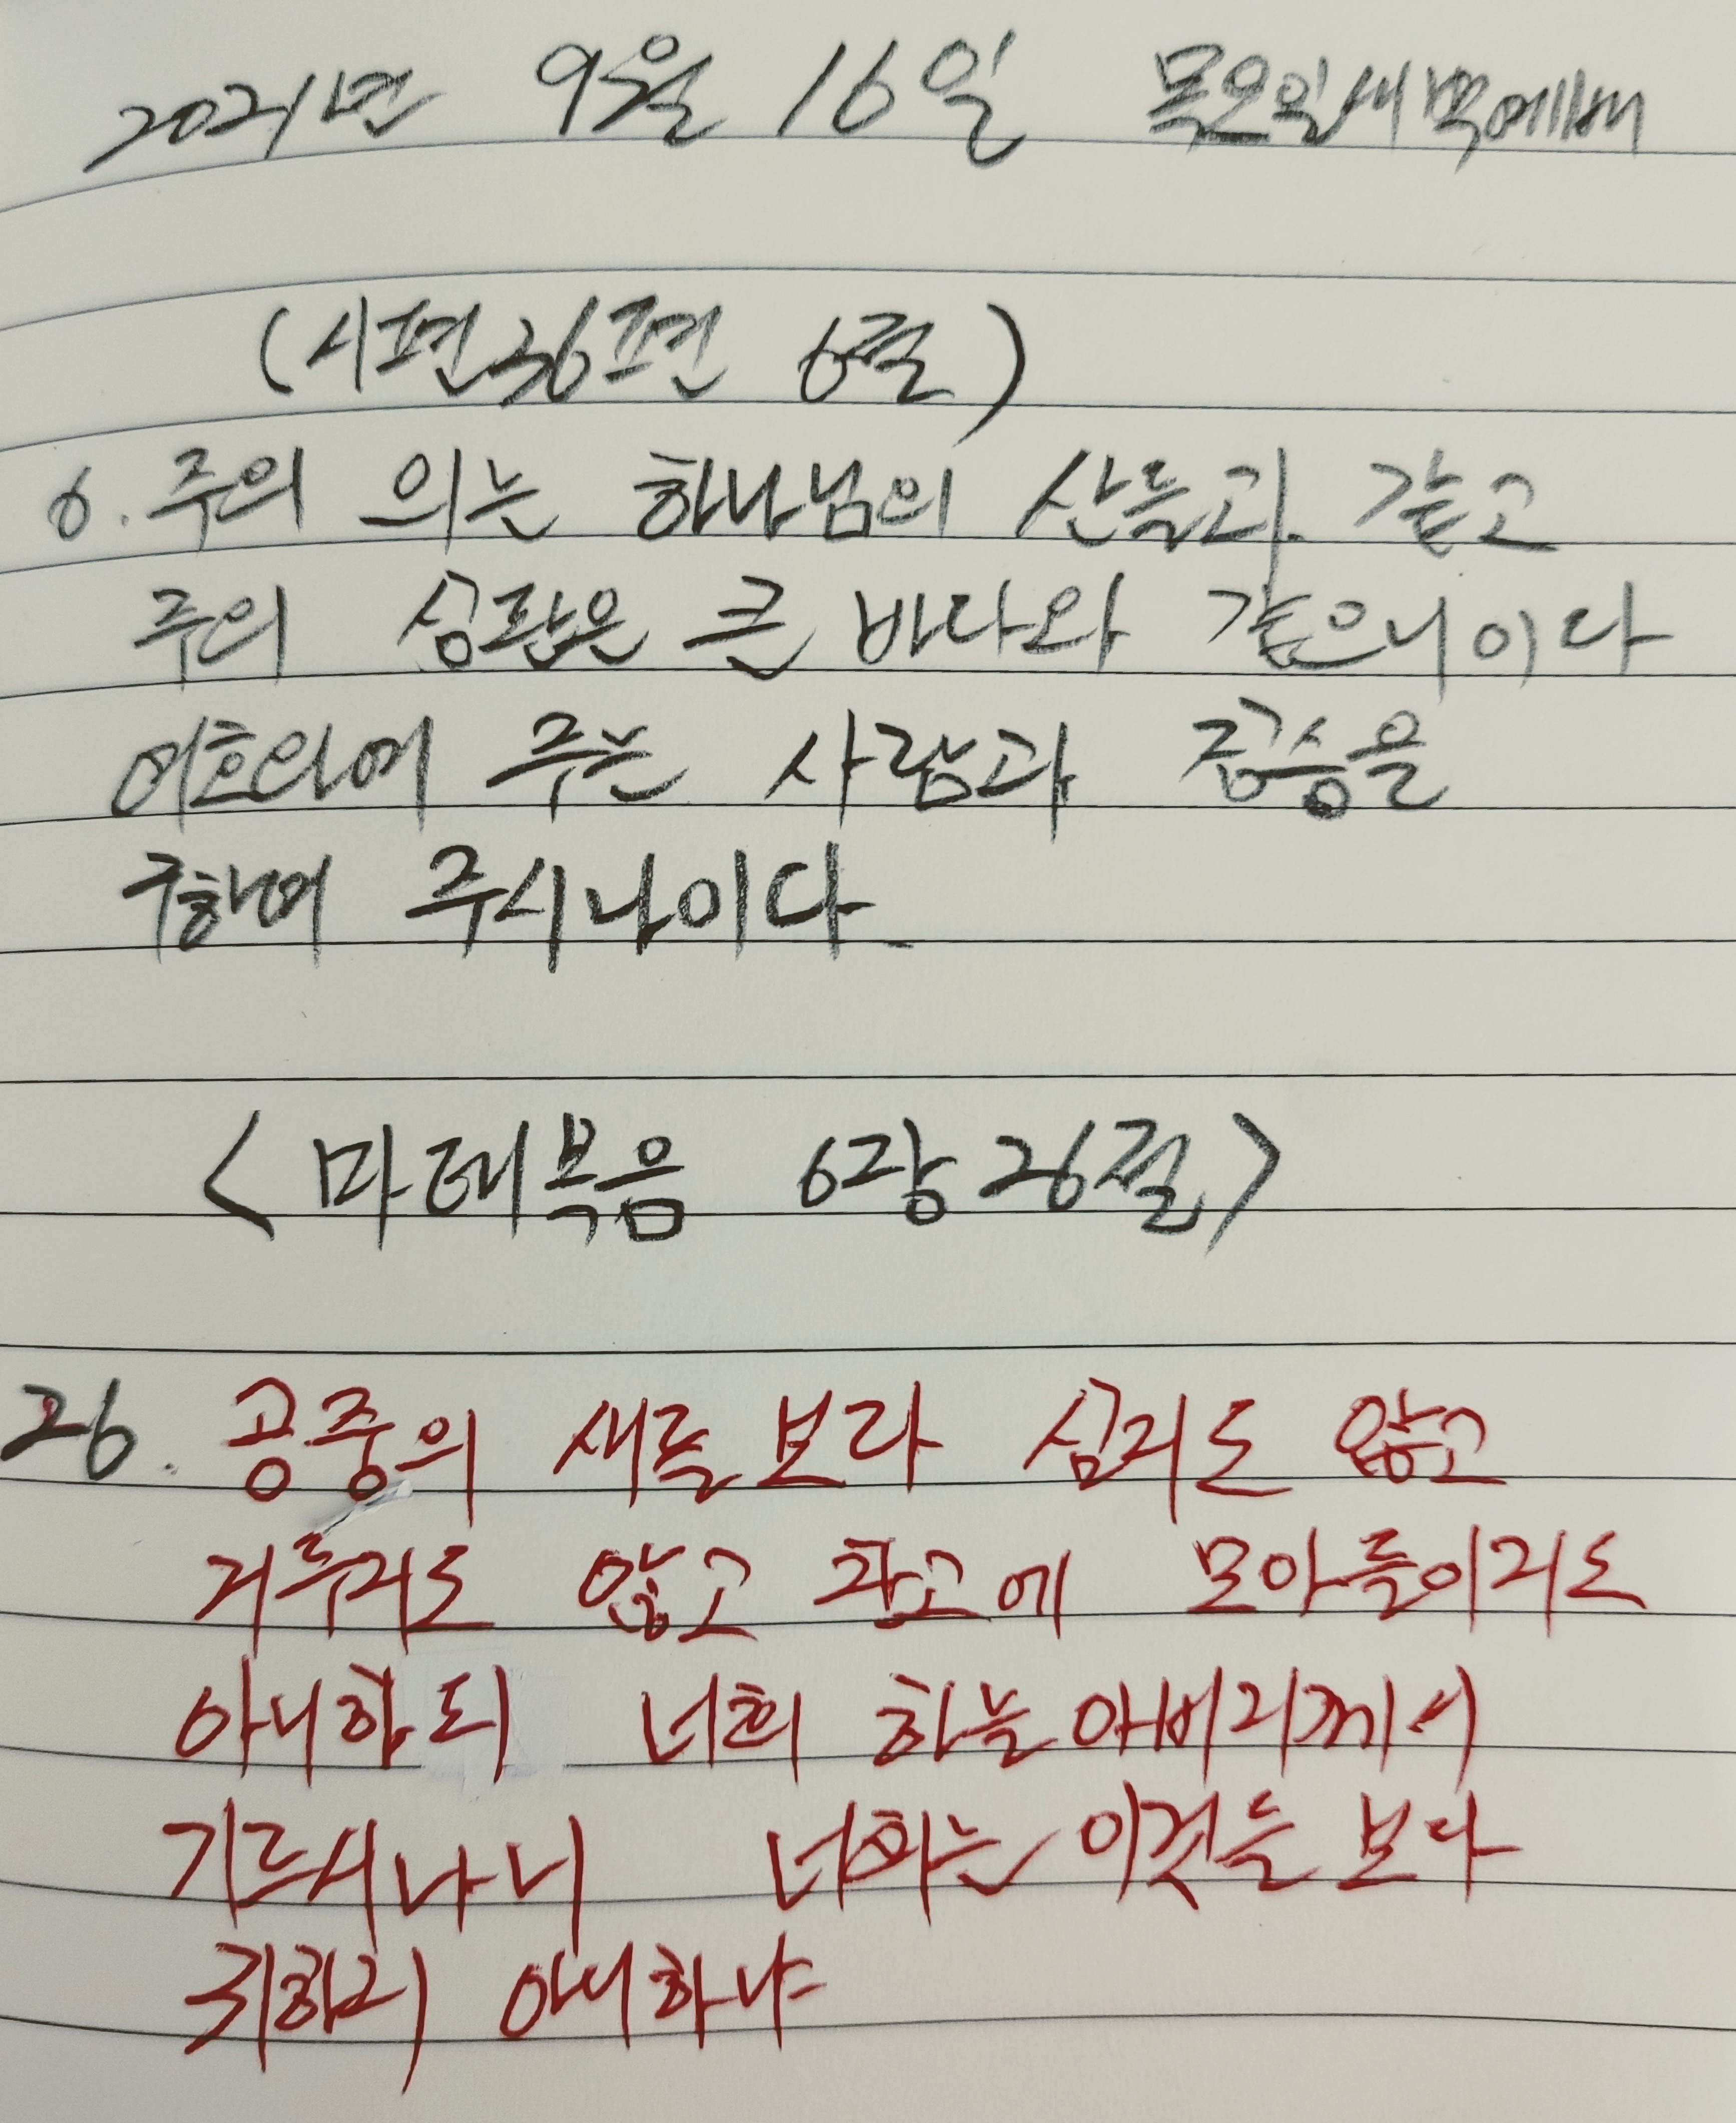 2021년 9월 16일 목요일새벽예배
(시편36편 6절)
6. 주의 의는 하나님의 산들과 같고
주의 심판은 큰 바다와 같으니이다
여호와여 주는 사람과 짐승을
구하여 주시나이다
<마태복음 6장 26절>
26. 공중의 새를 보라 심지도 않고
거두지도 않고 창고에 모아들이지도
아니하되 너희 하늘 아버지께서
기르시나니 너희는 이것들 보다
귀하지 아니하냐